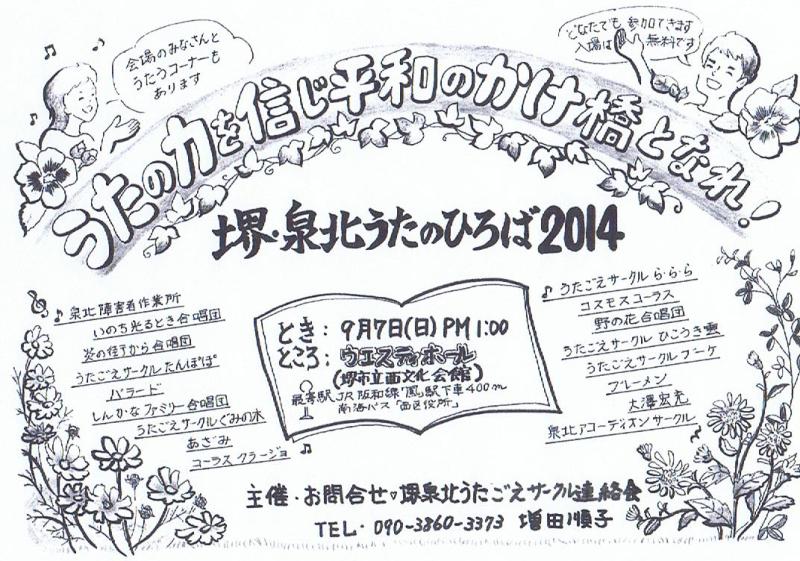 会場のみなさんと
うたうコーナーも
あります
どなたでも参加できます
入場は無料です
うたの力を信じ平和のかけ橋となれ!
堺・泉北うたのひろば2014
泉北障害者作業所
いのち光るとき合唱団
炎の街から合唱団
うたごえサークルたんぽぽ
バラード
しんかなファミリー合唱団
うたごえサークルぐみの木
あざみ
コーラスクラージョ
とき: 9月7日(日)PM1:00
ところ: ウエスティホール
(堺市立西文化会館)
最寄駅 JR阪和線「鳳」駅下車400m
南海バス「西区役所」
うたごえサークルら・ら・ら
コスモスコーラス
野の花合唱団
うたごえサークルひこうき雲
うたごえサークルブーケ
ブレーメン
大澤宏充
泉北アコーディオンサークル
主催・お問合せ♡堺泉北うたごえサークル連絡会
TEL・090-3860-3373 増田順子